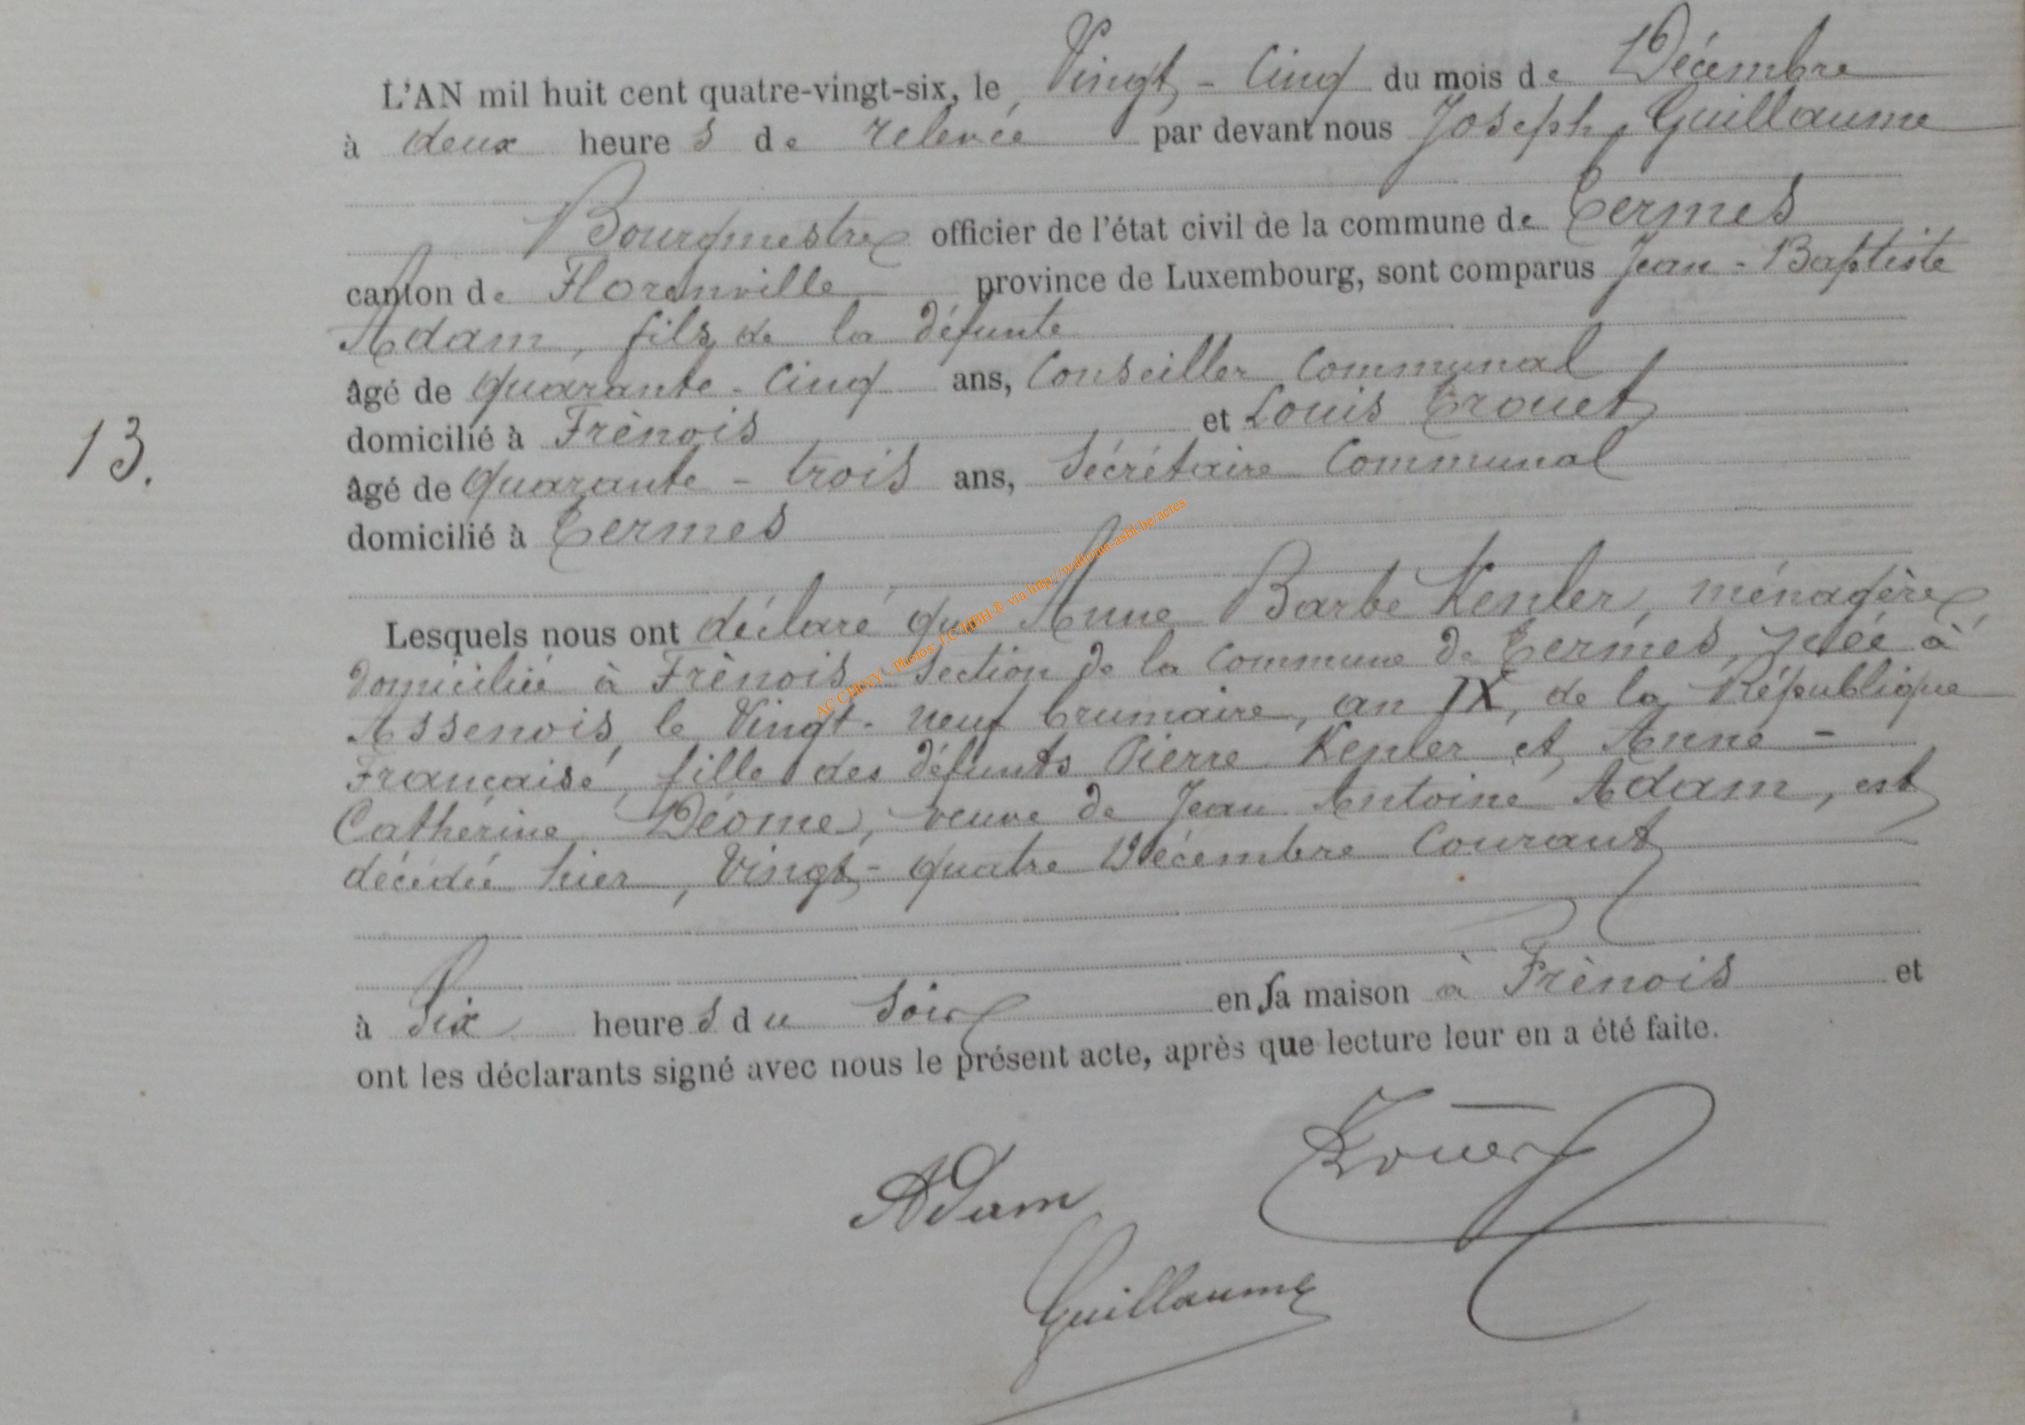 L'AN mil huit cent quatre-vingt-six, le Vingt-Cinq du mois de Décembre
à deux heures de relevée par devant nous Joseph Guillaume
Bourgmestre officier de l'état civil de la commune de Termes
canton de Florenville province de Luxembourg, sont comparus Jean-Baptiste
Adam, fils de la défunte
âgé de quarante-Cinq ans, Conseiller Communal
domicilié à Frènois et Louis Trouet
13.
âgé de quarante-trois ans, Sécrétaire Communal
domicilié à Termes
Lesquels nous ont déclaré que Anne Barbe Kenler, ménagère,
domiciliée à Frènois section de la commune de Termes, née à
Assenois, le Vingt-neuf brumaire, an IX, de la République
Française, fille des défunts Pierre Kenler et Anne-
Cathérine Déome, veuve de Jean Antoine Adam, est
décédée hier, Vingt-quatre Décembre Courant
à Six heures du Soir en sa maison à Frènois et
ont les déclarants signé avec nous le présent acte, après que lecture leur en a été faite.
Adam Trouet
Guillaume
AC CHINY \ Photos J.C.HBH.® via http://wallonia-asbl.be/actes